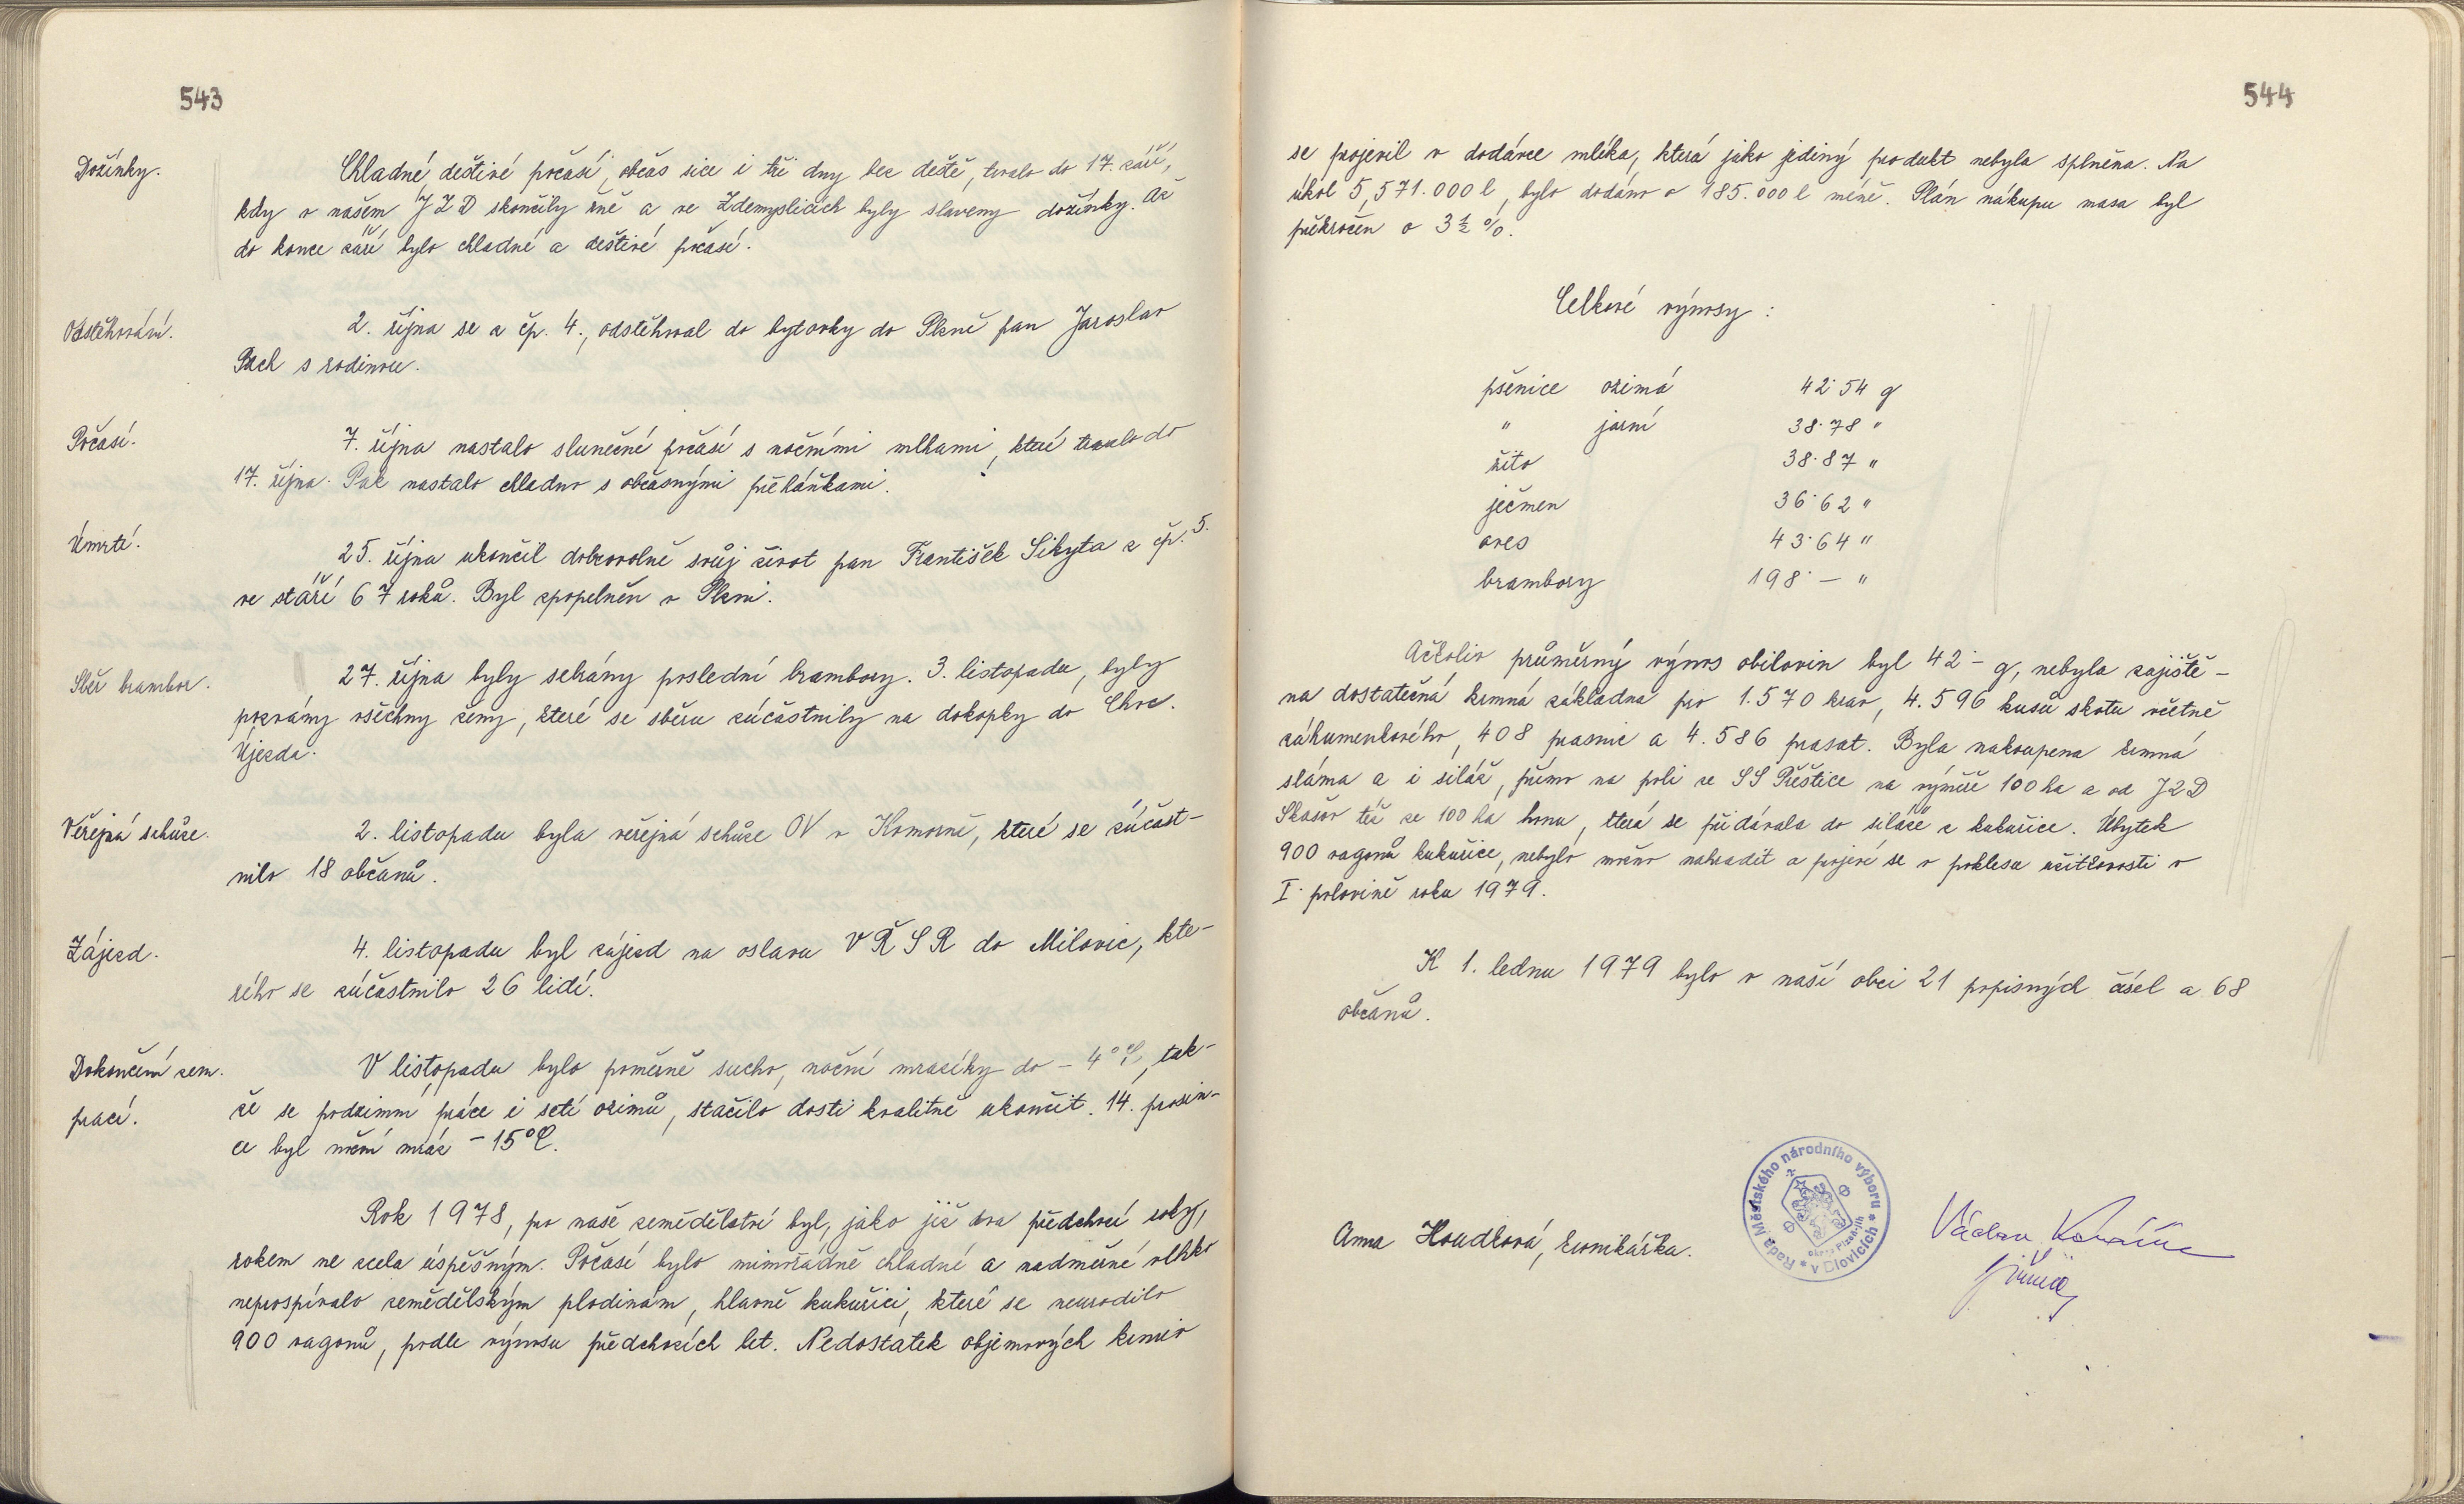 543
Dožínky.
Chladné, deštivé počasí, občas sice i tři dny bez deště, trvalo do 17. září,
kdy v našem JZD skončily žně a ve Zdemyslicích byly slaveny dožínky. Až
do konce září bylo chladné a deštivé počasí.
Odstěhování.
2. října se z čp. 4., odstěhoval do bytovky do Plzně pan Jaroslav
Pach s rodinou.
Počasí.
7. října nastalo slunečné počasí s nočními mlhami, které trvalo do
17. října. Pak nastalo chladno s občasnými přeháňkami.
Úmrtí.
25. října ukončil dobrovolně svůj život pan František Sikyta z čp. 5.
ve stáří 67 roků. Byl zpopelněn v Plzni.
Sběr brambor.
27. října byly sebrány poslední brambory. 3. listopadu, byly
pozvány všechny ženy, které se sběru zúčastnily na dokopky do Chvč.
Újezda.
Veřejná schůze.
2. listopadu byla veřejná schůze OV v Komorně, které se zúčast-
nilo 18 občanů.
Zájezd.
4. listopadu byl zájezd na oslavu VŘSR do Milovic, kte-
rého se zúčastnilo 26 lidí.
Dokončení zem.
prací.
V listopadu bylo poměrně sucho, noční mrazíky do -4°C, tak-
že se podzimní práce i setí ozimů, stačilo dosti kvalitně ukončit. 14. prosin-
ce byl noční mráz -15°C.
Rok 1978, pro naše zemědělství byl, jako již dva předchozí roky,
rokem ne zcela úspěšným. Počasí bylo mimořádně chladné a nadměrné vlhko
neprospívalo zemědělským plodinám, hlavně kukuřici, které se neurodilo
900 vagonů, podle výnosu předchozích let. Nedostatek objemových krmiv
544
se projevil v dodávce mléka, která jako jediný produkt nebyla splněna. Na
úkol 5,571.000 l, bylo dodáno o 185.000 l méně. Plán nákupu masa byl
překročen o 3½ %.
Celkové výnosy :
pšenice ozimá 42·54 q
" jarní 38·78 "
žito 38·87 "
ječmen 36·62 "
oves 43·64 "
brambory 198·– "
Ačkoliv průměrný výnos obilovin byl 42·– q, nebyla zajiště-
na dostatečná krmná základna pro 1.570 krav, 4.596 kusů skotu včetně
záhumenkového, 408 prasnic a 4.586 prasat. Byla nakoupena krmná
sláma a i siláž, přímo na poli ze SS Přeštice na výměře 100 ha a od JZD
Skašov též ze 100 ha honu, která se přidávala do siláže z kukuřice. Úbytek
900 vagonů kukuřice, nebylo možno nahradit a projeví se v poklesu užitkovosti v
I. polovině roku 1979.
K 1. lednu 1979 bylo v naší obci 21 popisných čísel a 68
občanů.
Anna Houdková, kronikářka.
Rada Městského národního výboru * v Blovicích *
okres Plzeň-jih
Václav